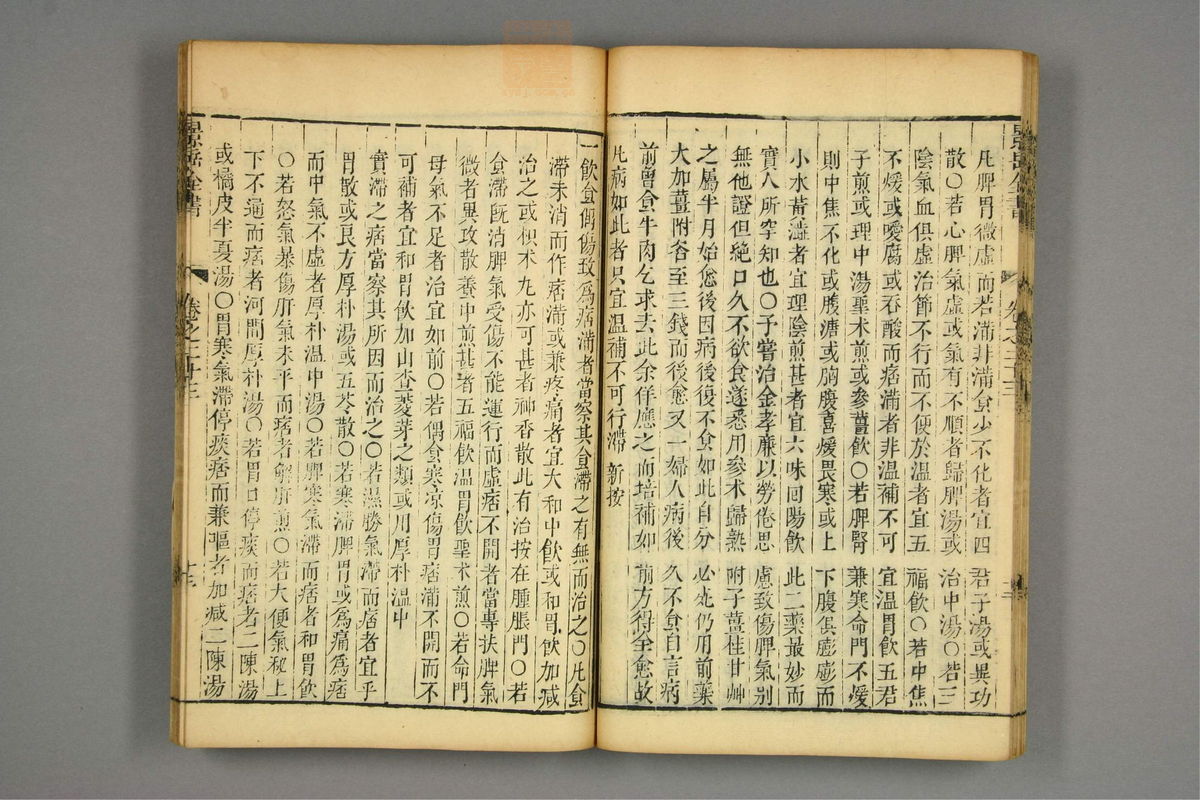 景岳全書
卷之二十三
凡脾胃微虛而若滿非滿食少不化者宜四君子湯或異功
散○若心脾氣虛或氣有不順者歸脾湯或治中湯○若三
陰氣血俱虛治節不行而不便於溫者宜五福飲○若中焦
不煖或噯腐或吞酸而痞滿者非溫補不可宜溫胃飲五君
子煎或理中湯聖朮煎或參薑飲○若脾腎兼寒命門不煖
則中焦不化或腹溏或胸腹喜煖畏寒或上下腹俱膨膨而
小水黃澁者宜理陰煎甚者宜六味回陽飲此二藥最妙而
實人所罕知也○予嘗治金孝廉以勞倦思慮致傷脾氣別
無他證但絕口久不欲食遂悉用參朮歸熟附子薑桂甘艸
之屬半月始愈後因病後復不食如此自分必死仍用前藥
大加薑附各至三錢而後愈又一婦人病後久不食自言病
前曾食牛肉乞求去此余佯應之而培補如前方得全愈故
凡病如此者只宜溫補不可行滯 新按
一飲食偶傷致為痞滿者當察其食滯之有無而治之○凡食
滯未消而作痞滿或兼疼痛者宜大和中飲或和胃飲加減
治之或枳朮丸亦可甚者神香散此有治按在腫脹門○若
食滯既消脾氣受傷不能運行而虛痞不開者當專扶脾氣
微者異攻散養中煎甚者五福飲溫胃飲聖朮煎○若命門
母氣不足者治宜如前○若偶食寒凉傷胃痞滿不開而不
可補者宜和胃飲加山查麥芽之類或用厚朴溫中
實滯之痞當察其所因而治之○若濕勝氣滯而痞者宜平
胃散或良方厚朴湯或五苓散○若寒滯脾胃或為痛為痞
而中氣不虛者厚朴溫中湯○若脾寒氣滯而痞者和胃飲
○若怒氣暴傷肝氣未平而痞者解肝煎○若大便氣秘上
下不通而痞者河間厚朴湯○若胃口停痰而痞者二陳湯
或橘皮半夏湯○胃寒氣滯停痰痞而兼嘔者加減二陳湯
景岳全書
卷之二十三
十三